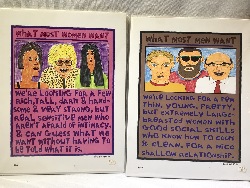 WHAT MOST WOMEN WANT
WE'RE LOOKING FOR A FEW
RICH, TALL, DARK & HAND-
SOME & VERY STRONG, BUT
REAL SENSITIVE MEN WHO
AREN'T AFRAID OF INTIMACY.
& CAN GUESS WHAT WE
WANT WITHOUT HAVING TO
BE TOLD WHAT IT IS.
WHAT MOST MEN WANT
WE'RE LOOKING FOR A FEW
THIN, YOUNG, PRETTY,
BUT EXTREMELY LARGE-
BREASTED WOMEN WITH
GOOD SOCIAL SKILLS
WHO KNOW HOW TO COOK
& CLEAN, FOR A NICE
SHALLOW RELATIONSHIP.